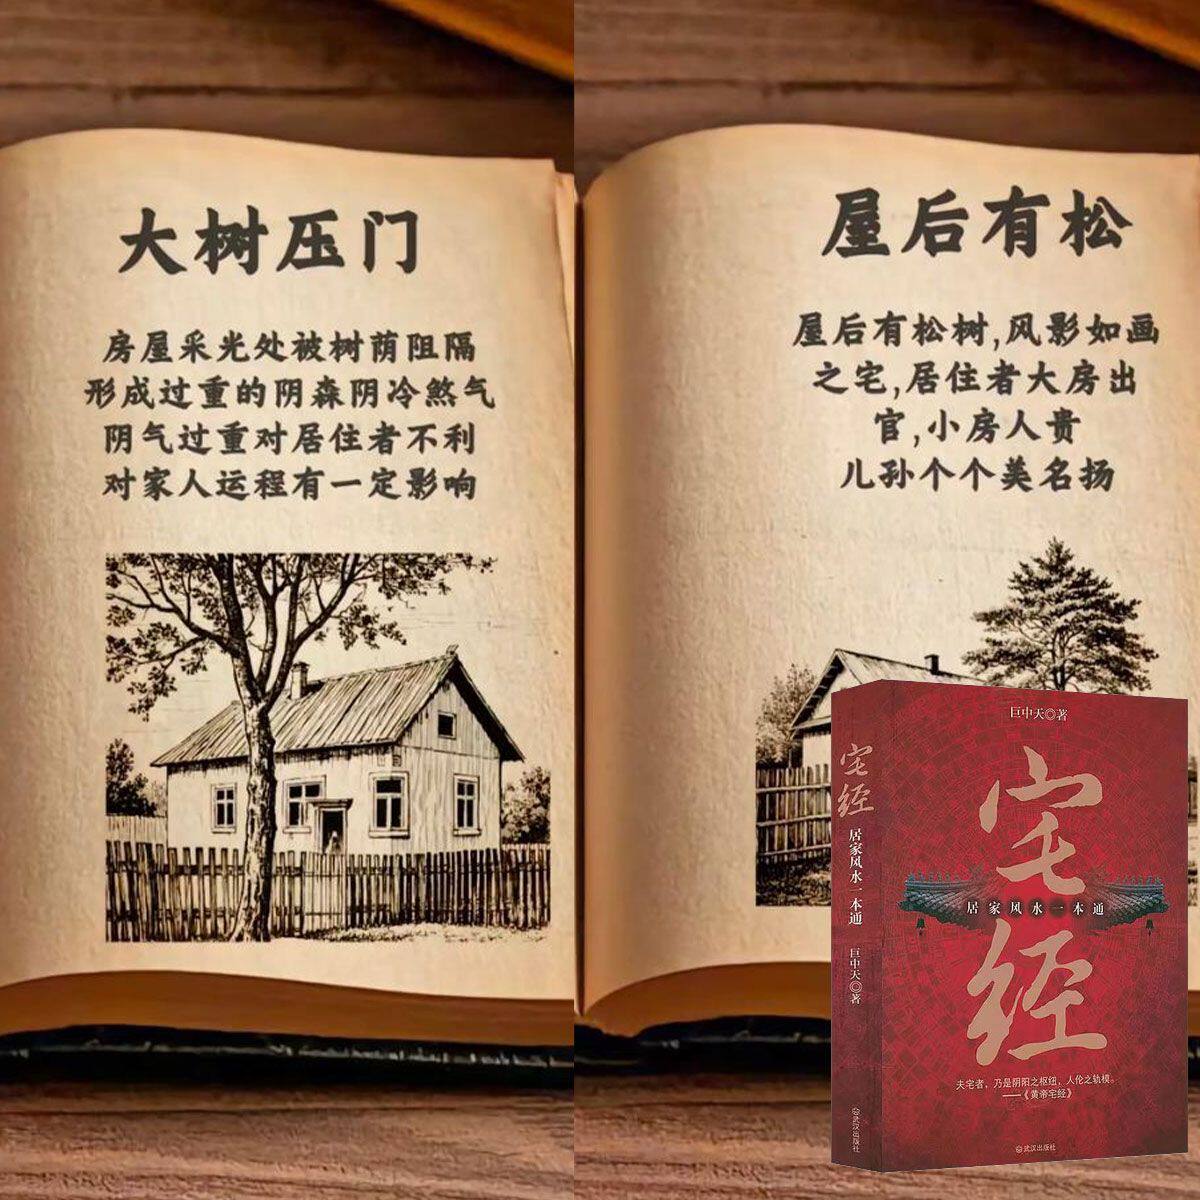 大树压门
房屋采光处被树荫阻隔
形成过重的阴森阴冷煞气
阴气过重对居住者不利
对家人运程有一定影响
屋后有松
屋后有松树,风影如画
之宅,居住者大房出
官,小房人贵
儿孙个个美名扬
宅经
居家风水一本通
巨中天◎著
武汉出版社
巨中天◎著
宅经
居家风水一本通
夫宅者，乃是阴阳之枢纽，人伦之轨模。
——《黄帝宅经》
武汉出版社